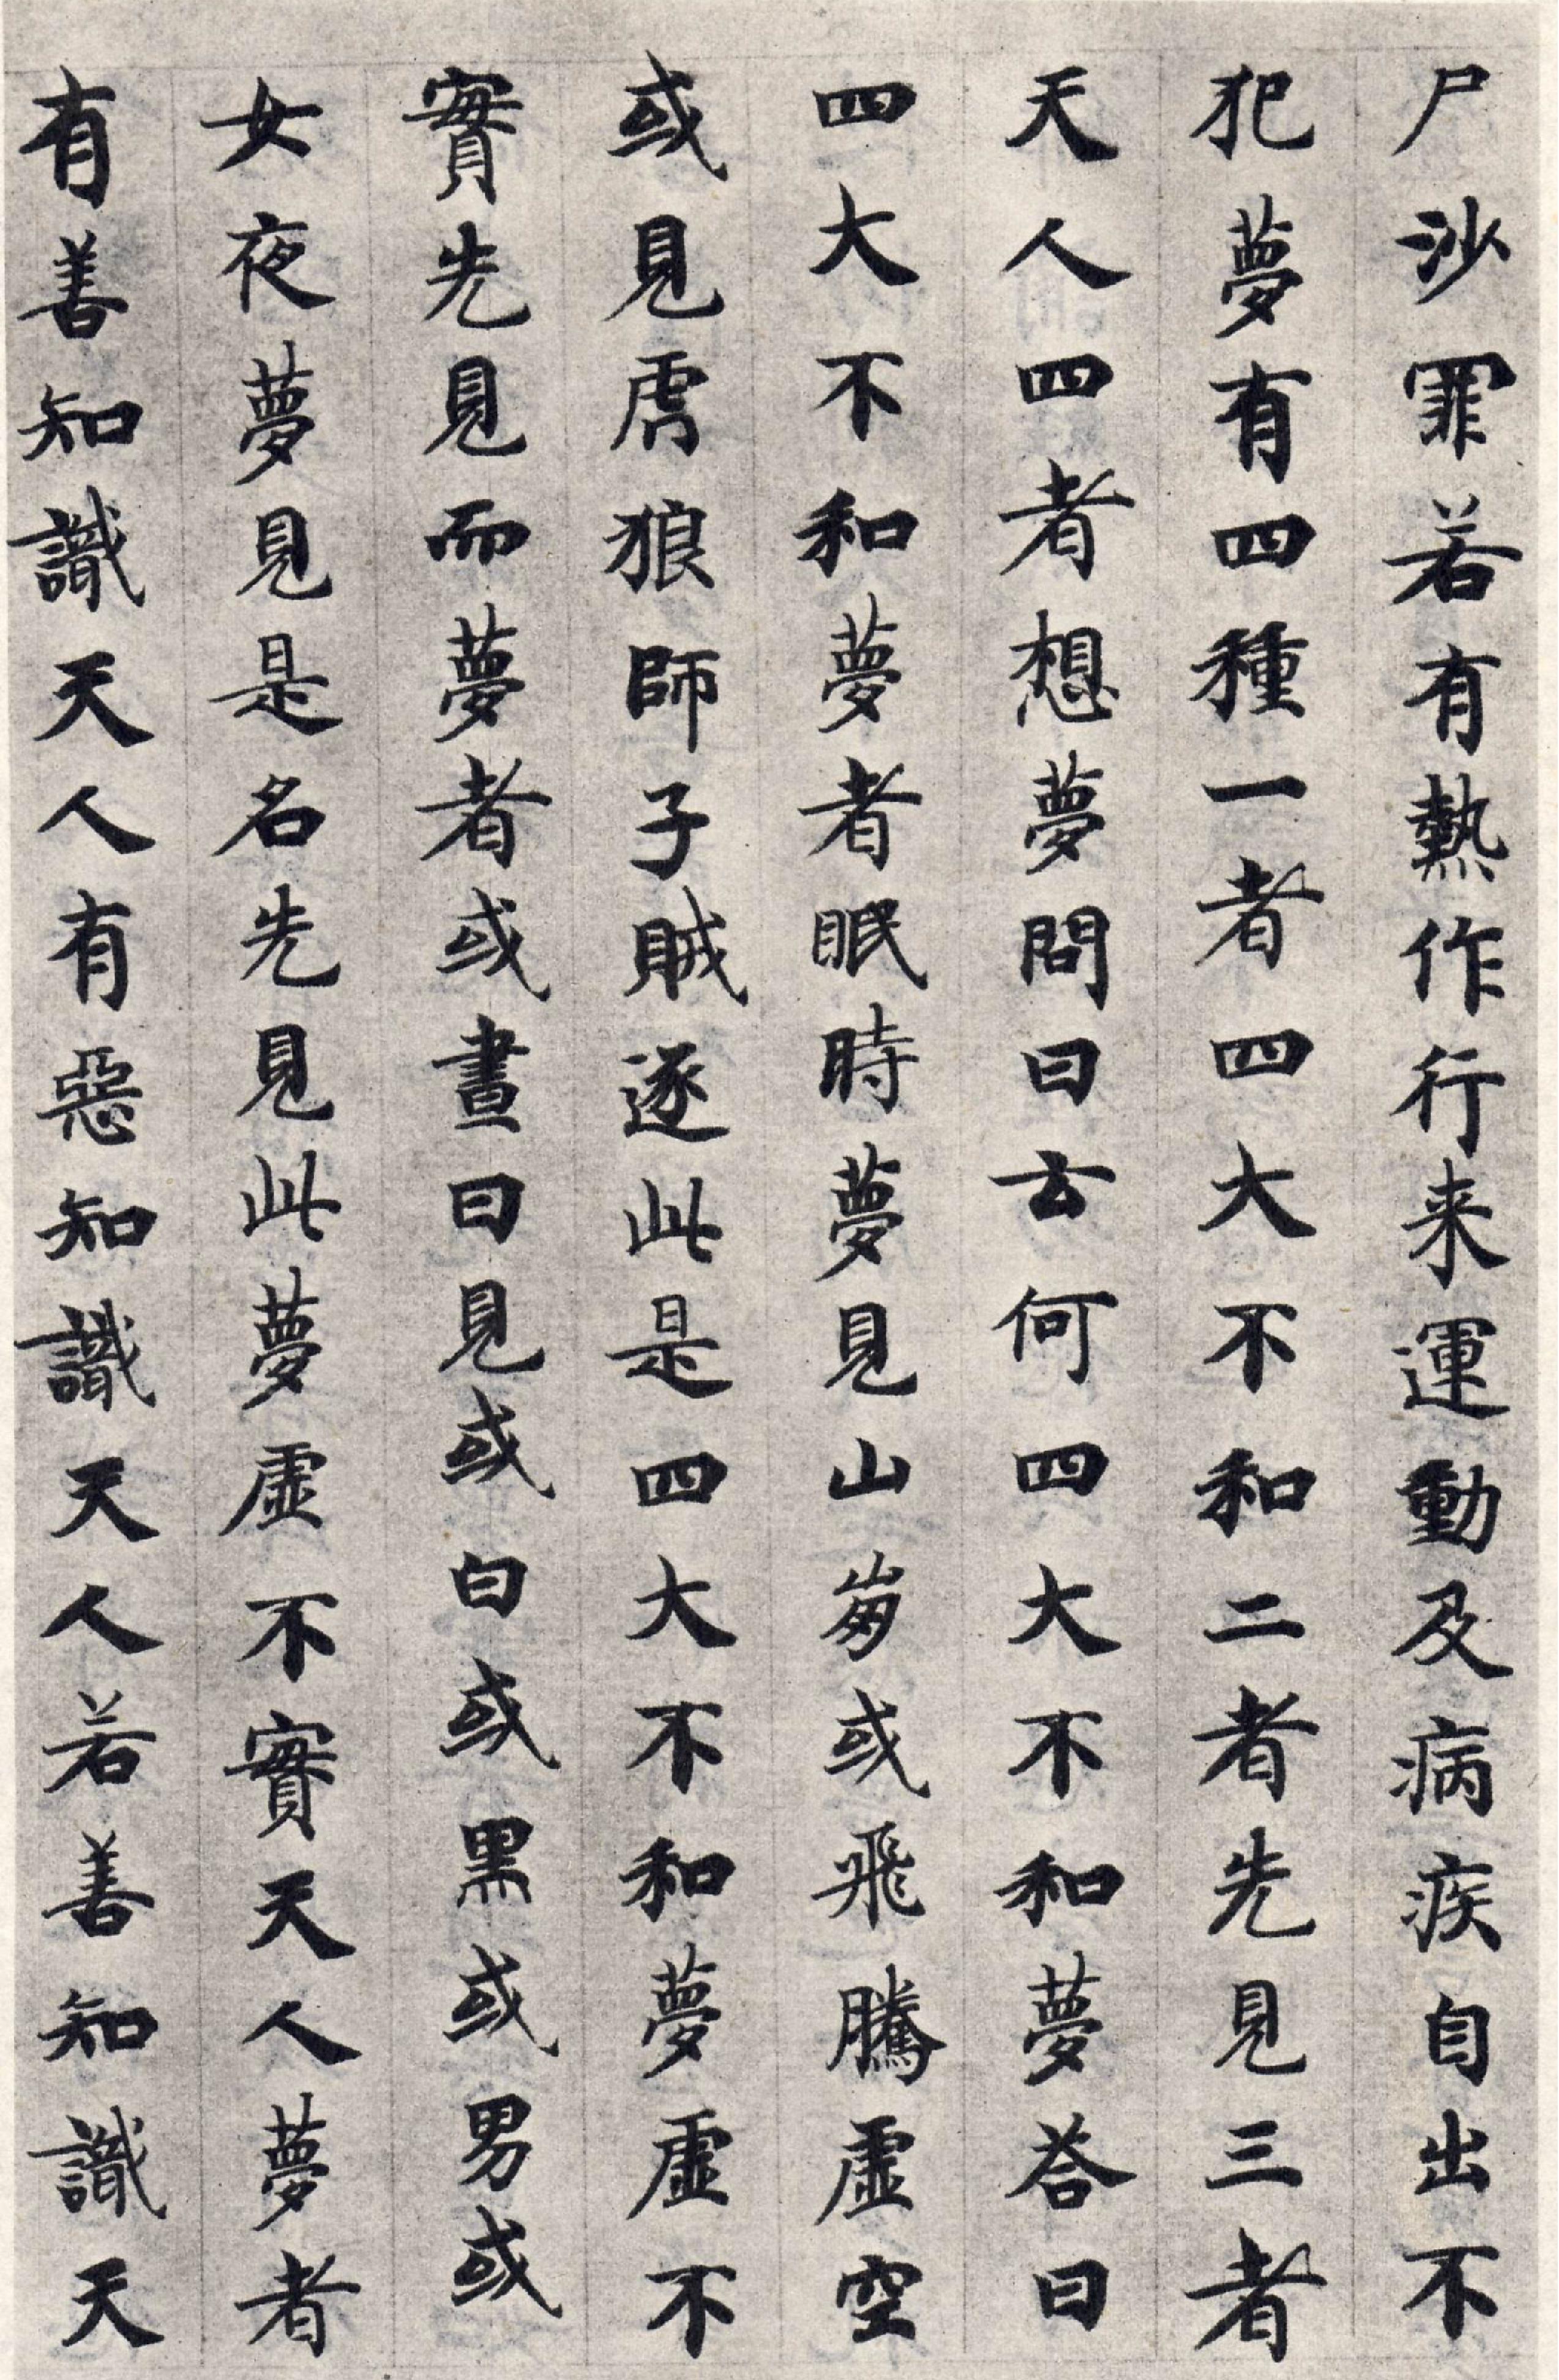 尸沙罪若有熱作行来運動及病疾自出不
犯夢有四種一者四大不和二者先見三者
天人四者想夢問曰云何四大不和夢荅曰
四大不和夢者眠時夢見山崩或飛騰虛空
或見虎狼師子賊逐此是四大不和夢虛不
實先見而夢者或晝日見或白或黑或男或
女夜夢見是名先見此夢虛不實天人夢者
有善知識天人有惡知識天人若善知識天